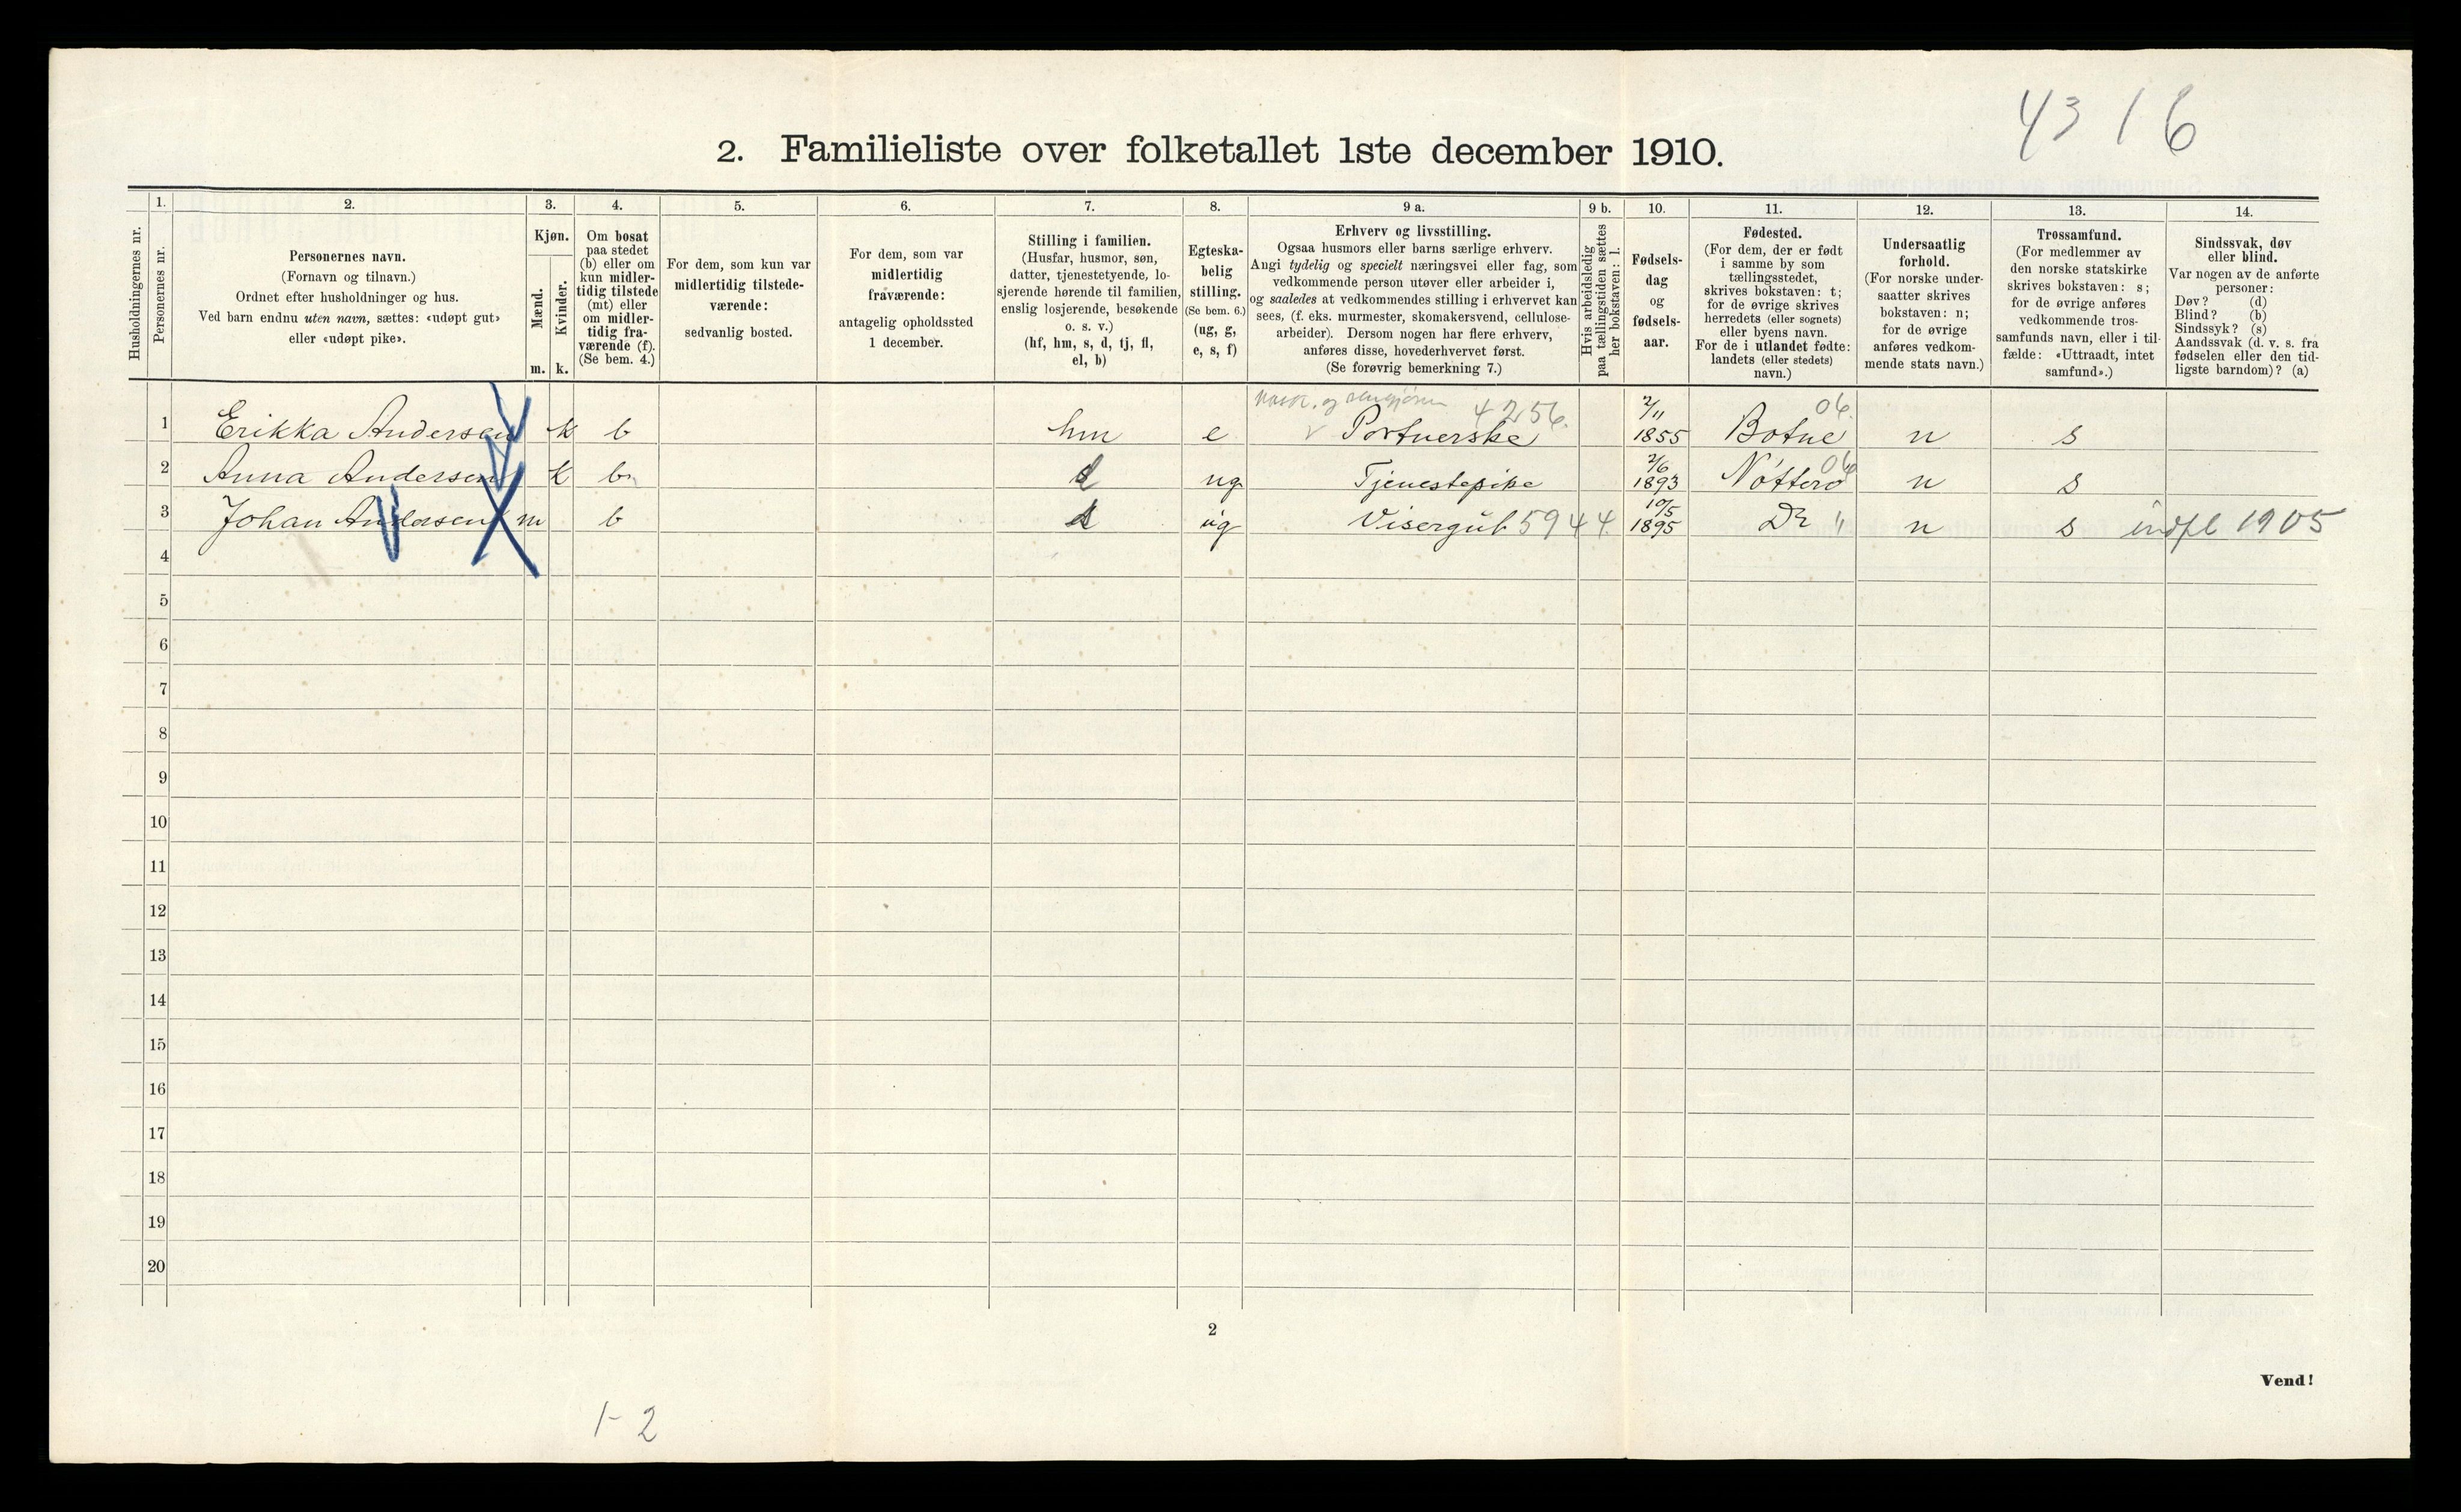 4316
2. Familieliste over folketallet 1ste december 1910.
Husholdningernes nr.
1.
Personernes nr.
2.
Personernes navn.
(Fornavn og tilnavn.)
Ordnet efter husholdninger og hus.
Ved barn endnu uten navn, sættes: «udøpt gut»
eller «udøpt pike».
3.
Kjøn.
Mænd.
Kvinder.
m. k.
4.
Om bosat
paa stedet
(b) eller om
kun midler-
tidig tilstede
(mt) eller
om midler-
tidig fra-
værende (f).
(Se bem. 4.)
5.
For dem, som kun var
midlertidig tilstede-
værende:
sedvanlig bosted.
6.
For dem, som var
midlertidig
fraværende:
antagelig opholdssted
1 december.
7.
Stilling i familien.
(Husfar, husmor, søn,
datter, tjenestetyende, lo-
sjerende hørende til familien,
enslig losjerende, besøkende
o. s. v.)
(hf, hm, s, d, tj, fl,
el, b)
8.
Egteska-
belig
stilling.
(Se bem. 6.)
(ug, g,
e, s, f)
9 a.
Erhverv og livsstilling.
Ogsaa husmors eller barns særlige erhverv.
Angi tydelig og specielt næringsvei eller fag, som
vedkommende person utøver eller arbeider i,
og saaledes at vedkommendes stilling i erhvervet kan
sees, (f. eks. murmester, skomakersvend, cellulose-
arbeider). Dersom nogen har flere erhverv,
anføres disse, hovederhvervet først.
(Se forøvrig bemerkning 7.)
9 b.
Hvis arbeidsledig
paa tællingstiden sættes
her bokstaven: l.
10.
Fødsels-
dag
og
fødsels-
aar.
11.
Fødested.
(For dem, der er født
i samme by som
tællingsstedet,
skrives bokstaven: t;
for de øvrige skrives
herredets (eller sognets)
eller byens navn.
For de i utlandet fødte:
landets (eller stedets)
navn.)
12.
Undersaatlig
forhold.
(For norske under-
saatter skrives
bokstaven: n;
for de øvrige
anføres vedkom-
mende stats navn.)
13.
Trossamfund.
(For medlemmer av
den norske statskirke
skrives bokstaven: s;
for de øvrige anføres
vedkommende tros-
samfunds navn, eller i til-
fælde: «Uttraadt, intet
samfund».)
14.
Sindssvak, døv
eller blind.
Var nogen av de anførte
personer:
Døv? (d)
Blind? (b)
Sindssyk? (s)
Aandssvak (d. v. s. fra
fødselen eller den tid-
ligste barndom)? (a)
1 Erikka Andersen k b hm e Portnerske 4256. 2/11 1855 Botne 06. n s
2 Anna Andersen k b d ug Tjenestepike 2/6 1893 Nøtterø 06 n s
3 Johan Andersen m b s ug Visergut 5944. 10/5 1895 Do " n s indfl 1905
4
5
6
7
8
9
10
11
12
13
14
15
16
17
18
19
20
2
Vend!
1-2